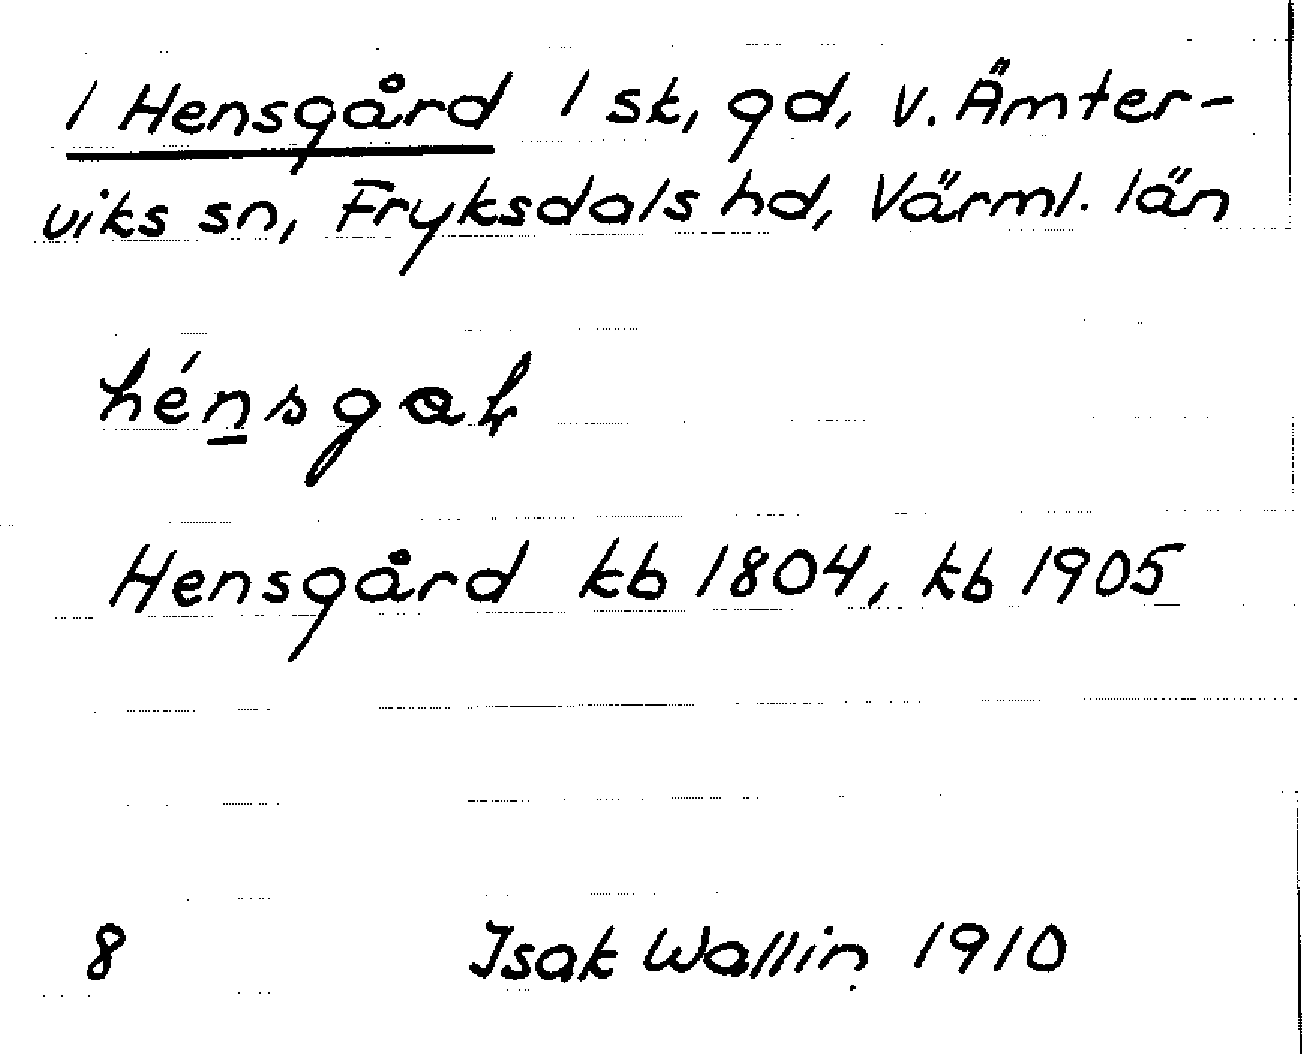 1 Hensgård 1 sk, gd, V. Ämter-
viks sn, Fryksdals hd, Värml. län
Hensgård kb 1804, kb 1905
8 Isak Wallin 1910